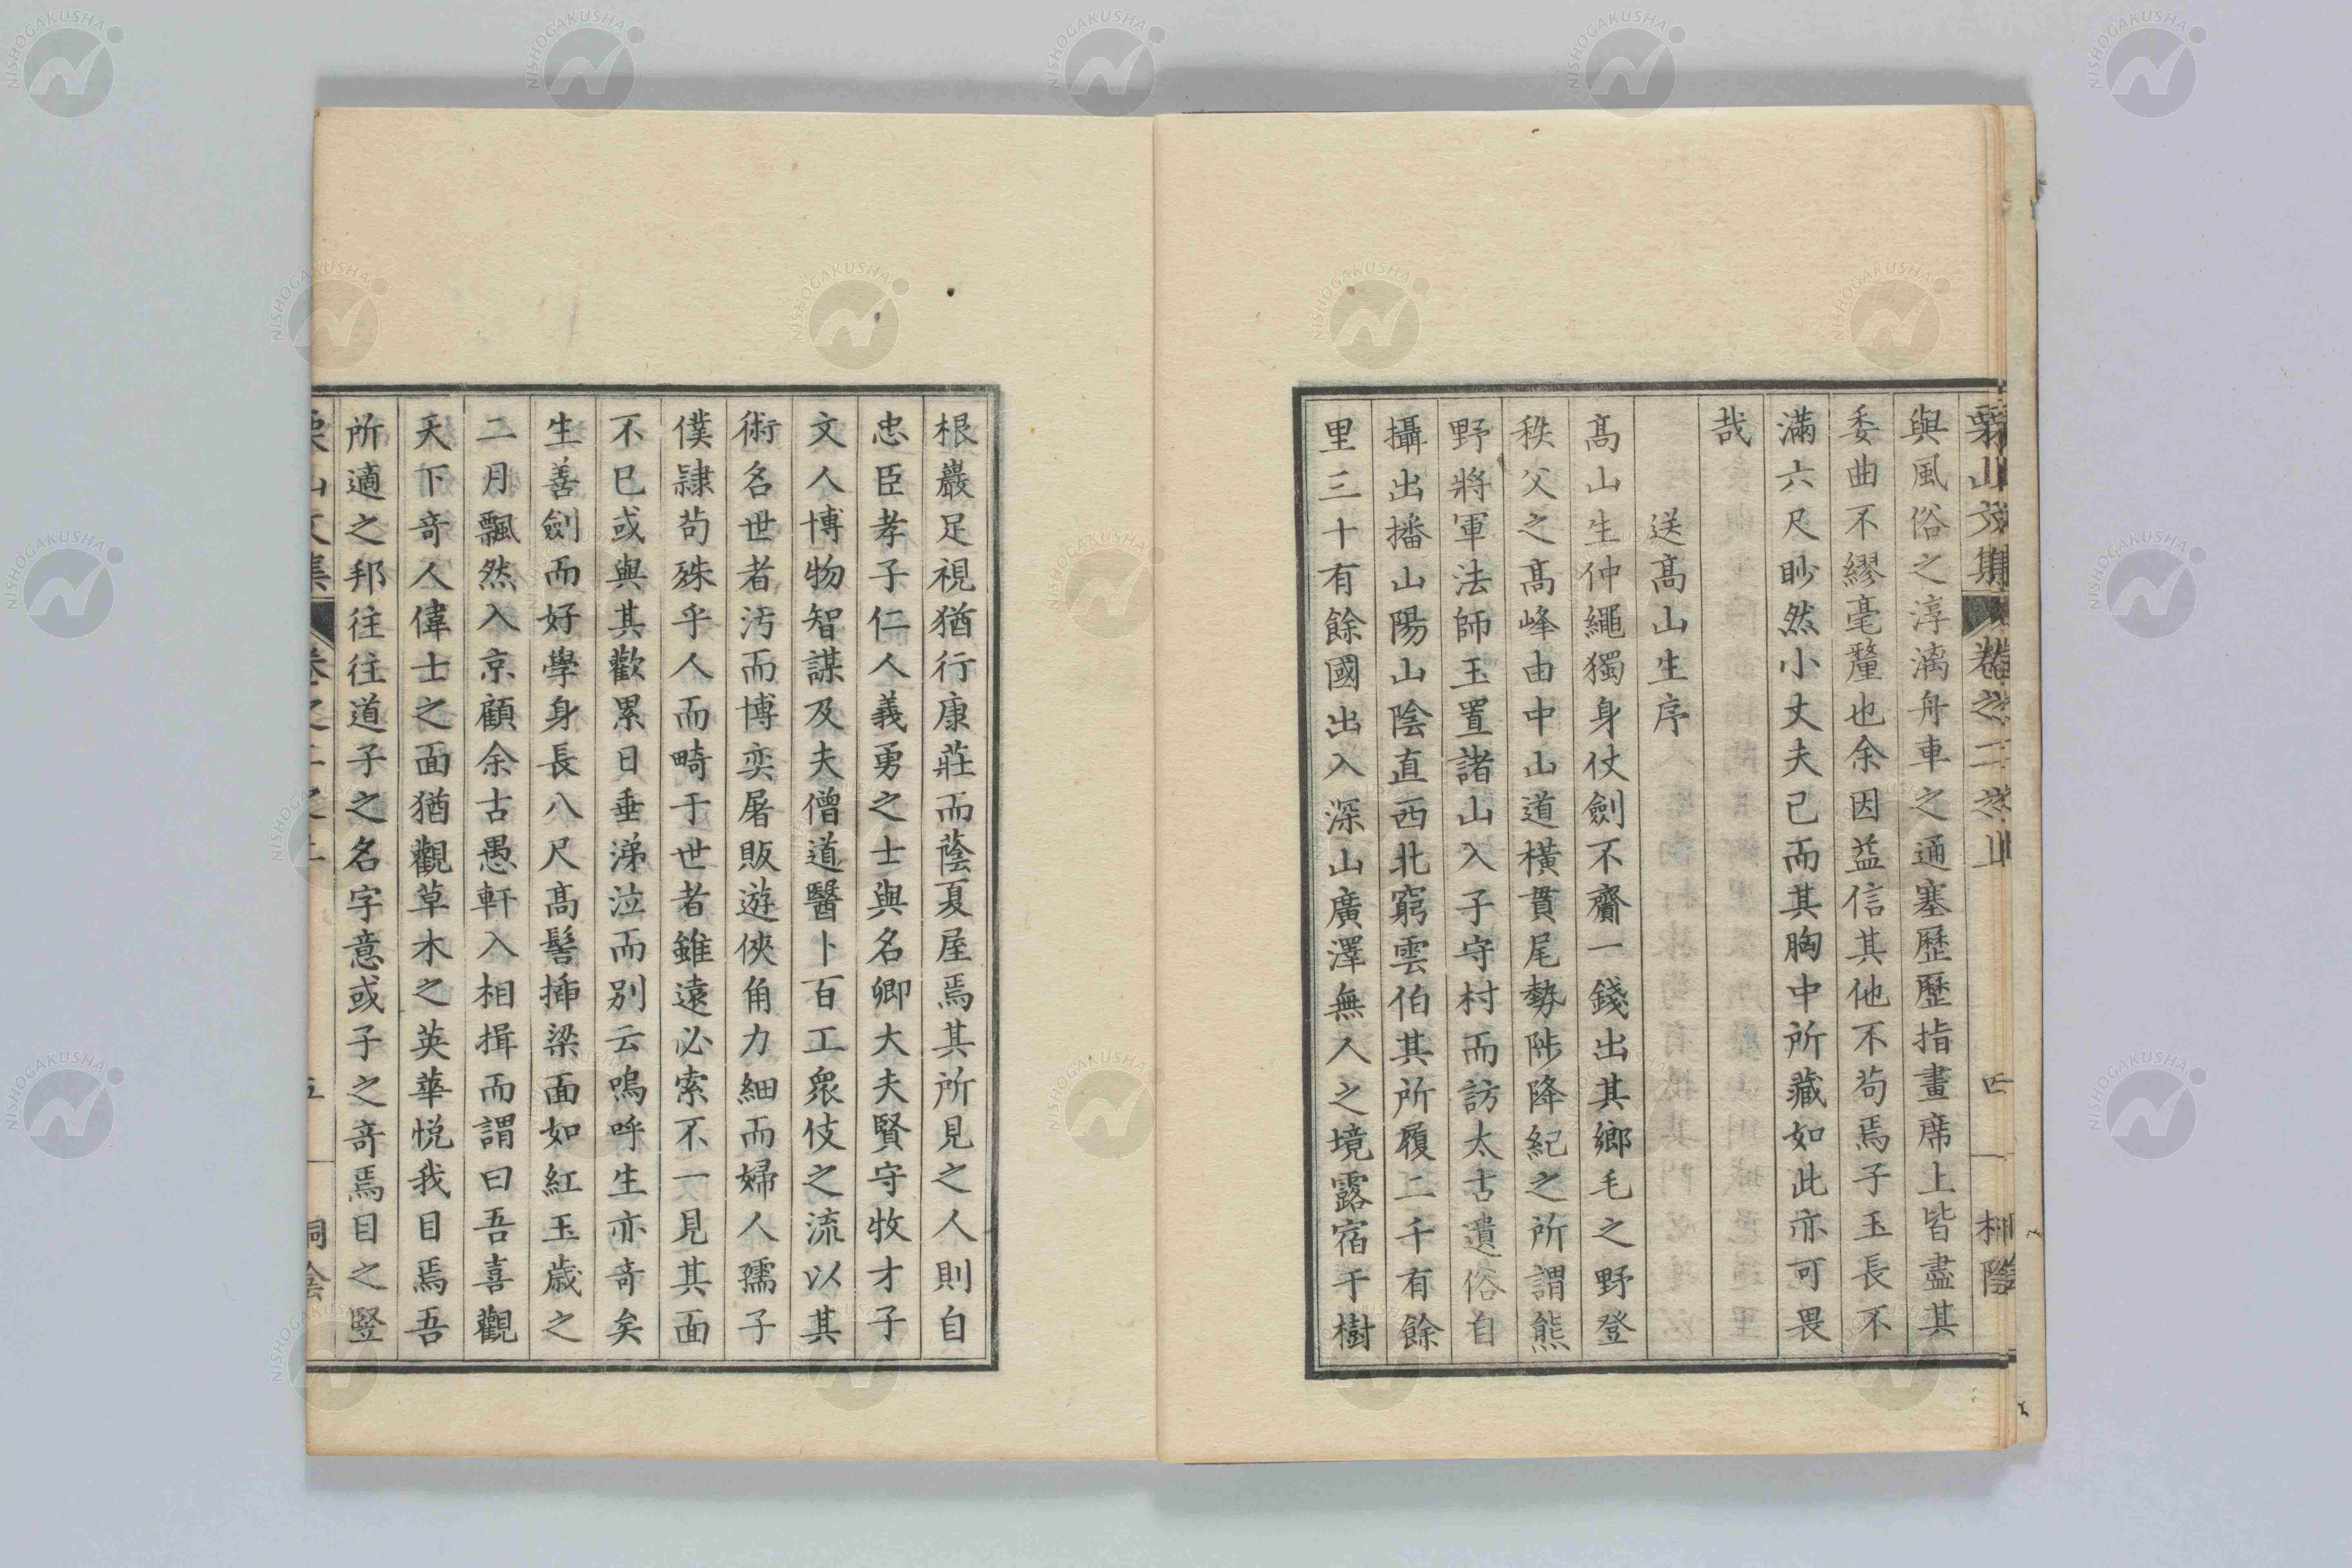 栗山文集 卷之二之上 四
與風俗之淳漓舟車之通塞歷歷指畫席上皆盡其
委曲不繆毫釐也余因益信其他不苟焉子玉長不
滿六尺眇然小丈夫已而其胸中所藏如此亦可畏
哉
送髙山生序
髙山生仲繩獨身仗劍不齎一錢出其鄉毛之野登
秩父之髙峰由中山道橫貫尾勢陟降紀之所謂熊
野將軍法師玉置諸山入子守村而訪太古遺俗自
攝出播山陽山陰直西北窮雲伯其所履二千有餘
里三十有餘國出入深山廣澤無人之境露宿于樹
根巖足視猶行康莊而蔭夏屋焉其所見之人則自
忠臣孝子仁人義勇之士與名卿大夫賢守牧才子
文人博物智謀及夫僧道醫卜百工衆伎之流以其
術名世者汚而博奕屠販遊俠角力細而婦人孺子
僕隷苟殊乎人而畸于世者雖遠必索不一見其面
不已或與其歡累日垂涕泣而別云嗚呼生亦奇矣
生善劍而好學身長八尺髙髻揷梁面如紅玉歳之
二月飄然入京顧余古愚軒入相揖而謂曰吾喜觀
天下奇人偉士之面猶觀草木之英華悅我目焉吾
所適之邦往往道子之名字意或子之奇焉目之豎
NISHOGAKUSHA